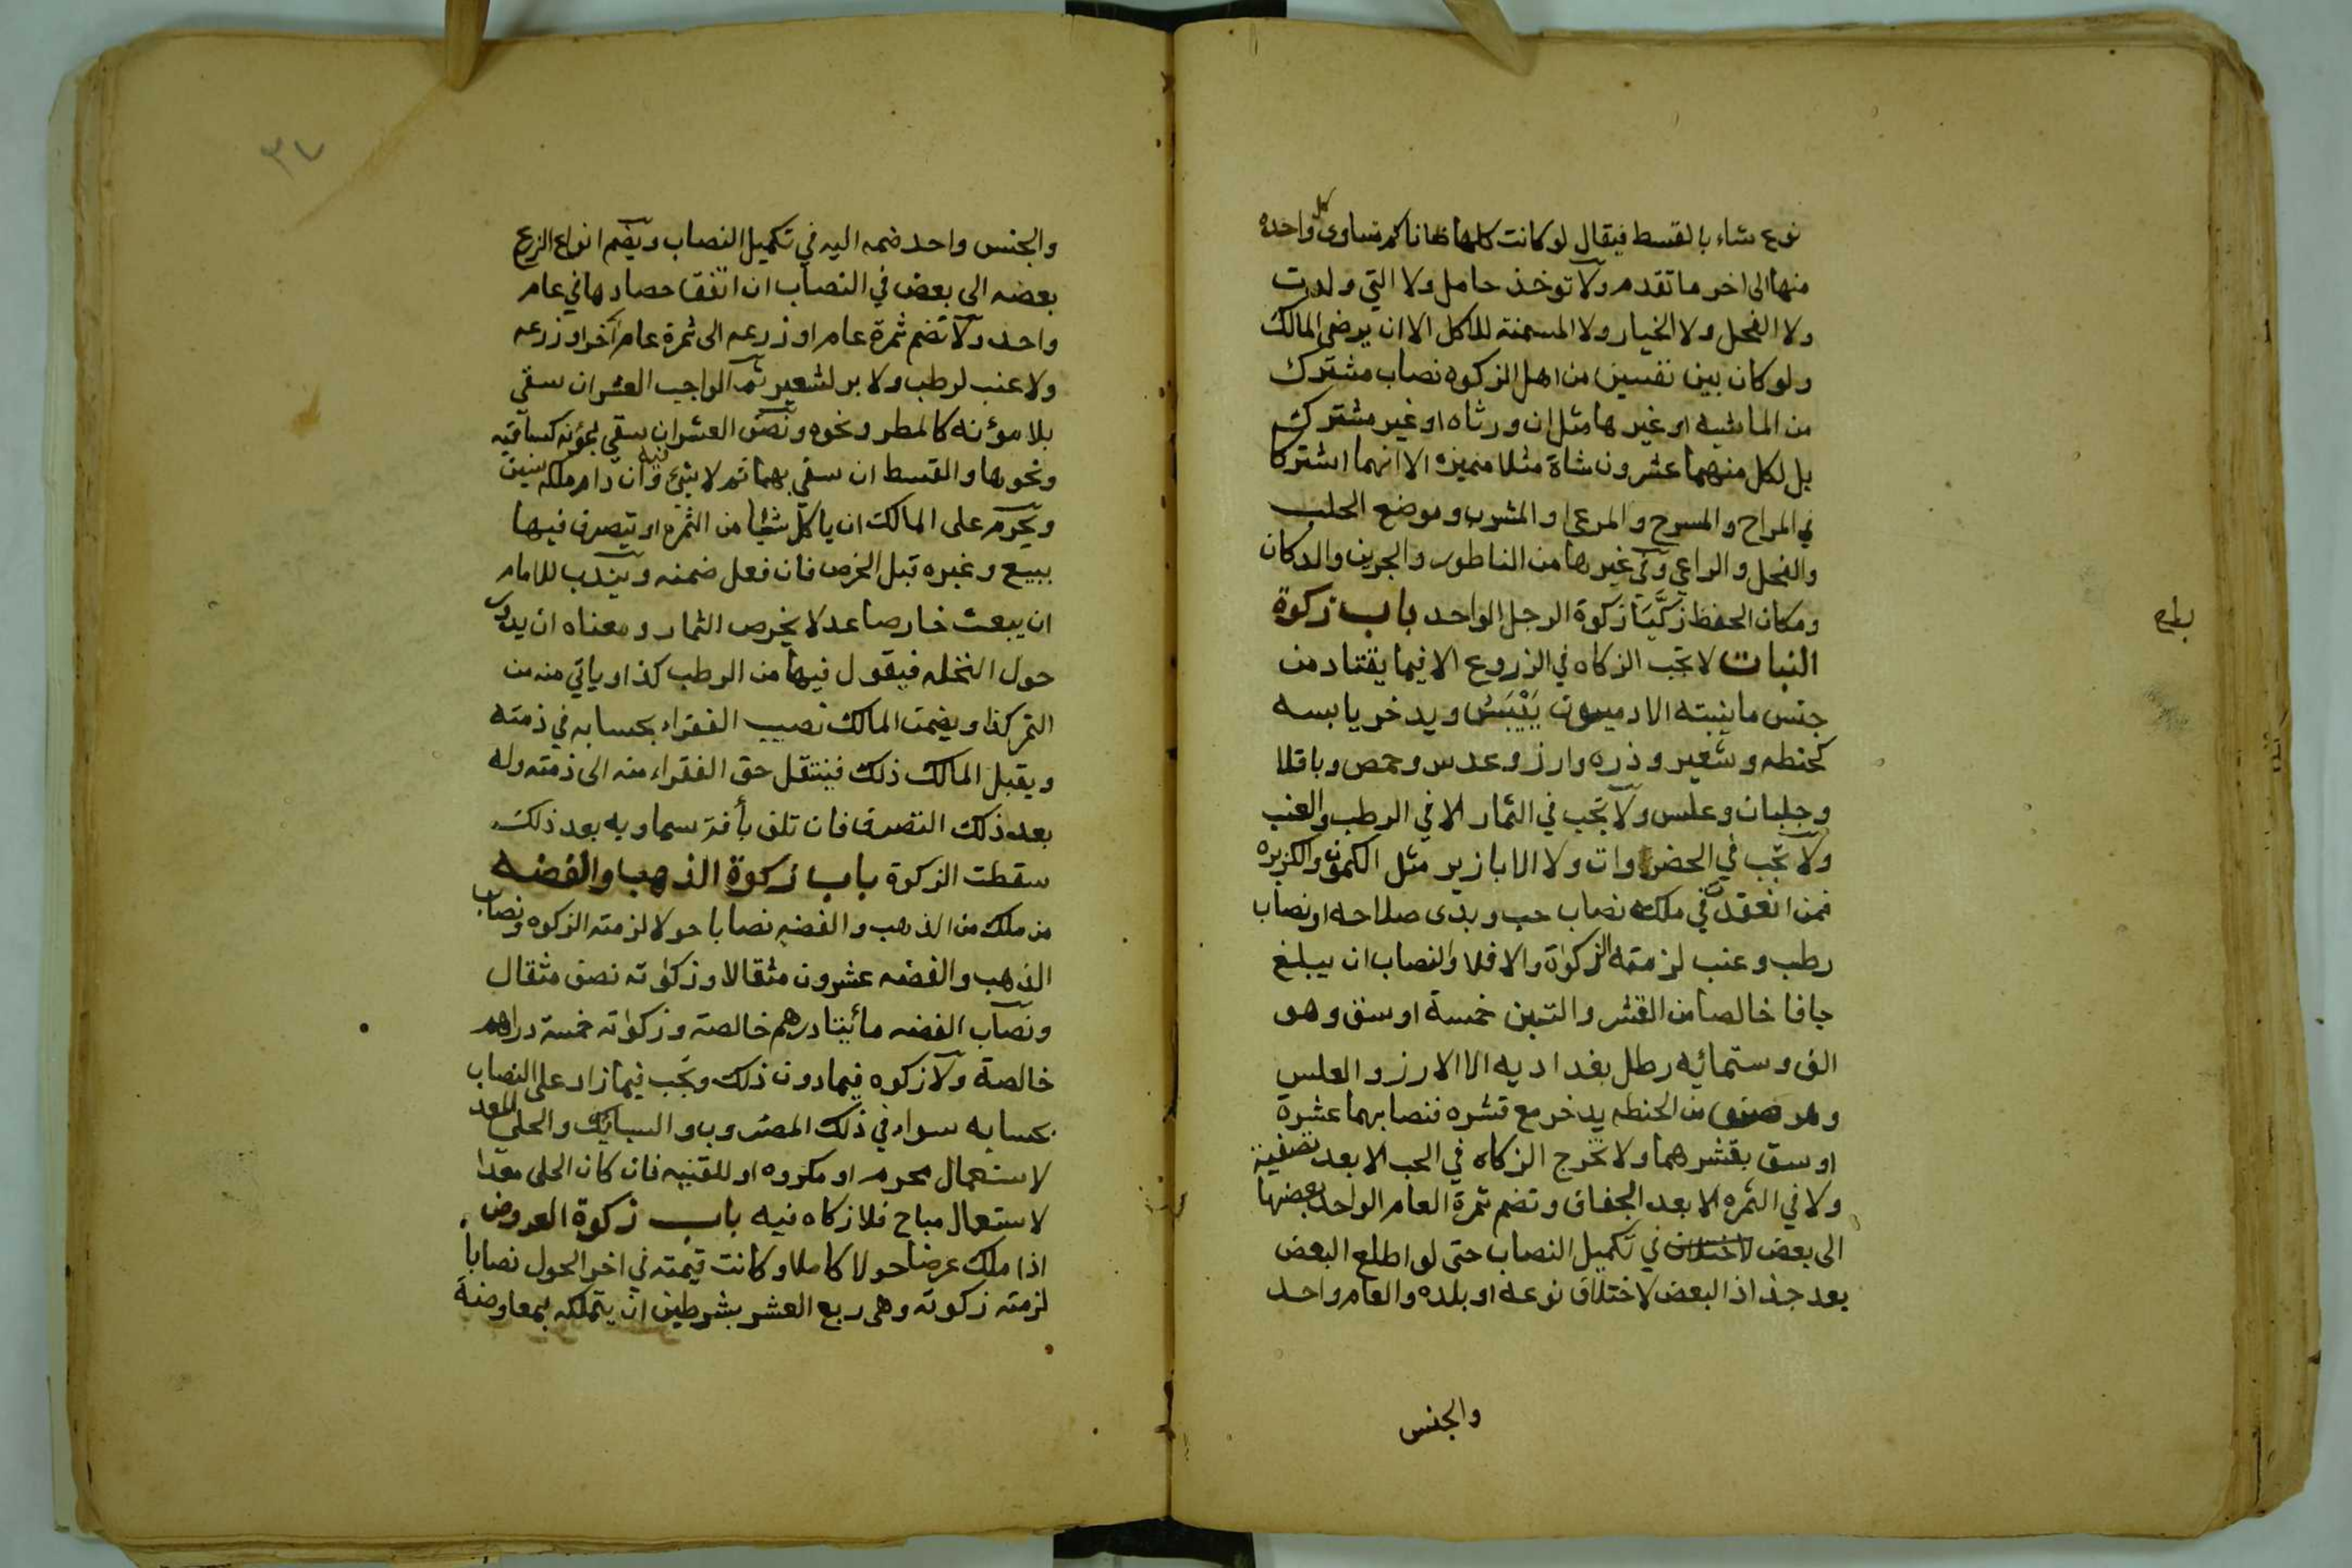 نوع شاء بالقسط فيقال لو كانت كلها ضانا كم تساوى كل واحده
منها الى اخر ما تقدم ولا توخذ حامل ولا التي ولدت
ولا الفحل ولا الخيار ولا المسمنة للاكل الا ان يرضى المالك
ولو كان بين نفسين من اهل الزكوه نصاب مشترك
من الماشيه او غيرها مثل ان ورثاه او غير مشترك
بل لكل منهما عشرون شاة مثلا مميزه الا انهما اشتركا
في المراح والمسرح والمرعى والمشرب وموضع الحلب
والفحل والراعي وفي غيرها من الناطور والجرين والدكان
ومكان الحفظ زكيا زكوة الرجل الواحد باب زكوة
النبات لا تجب الزكاه في الزروع الا فيما يقتاد من
جنس ما ينبته الادميون ييبس ويدخر يابسه
كحنطه وشعير وذره وارز وعدس وحمص وباقلا
وجلبان وعلس ولا تجب في الثمار الا في الرطب والعنب
ولا تجب في الخضراوات ولا الابازير مثل الكمون والكزبره
فمن انعقد في ملكه نصاب حب وبدى صلاحه او نصاب
رطب وعنب لزمته الزكوة والا فلا والنصاب ان يبلغ
جافا خالصا من القشر والتبن خمسة اوسق وهو
الف وستمائيه رطل بغداديه الا الارز والعلس
وهو صنف من الحنطه يدخر مع قشره فنصابهما عشرة
اوسق بقشرهما ولا تخرج الزكاه في الحب الا بعد تصفيته
ولا في الثمره الا بعد الجفاف وتضم ثمرة العام الواحد بعضها
الى بعض في تكميل النصاب حتى لو اطلع البعض
بعد جذاذ البعض لاختلاف نوعه او بلده والعام واحد
والجنس
٣٧
والجنس واحد ضمه اليه في تكميل النصاب ويضم انواع الزرع
بعضه الى بعض في النصاب ان اتفقا حصادهما في عام
واحد ولا تضم ثمرة عام او زرعه الى ثمرة عام آخر او زرعه
ولا عنب لرطب ولا بر لشعير ثم الواجب العشر ان سقي
بلا مؤنه كالمطر ونحوه ونصف العشر ان سقي بمؤنه كساقيه
ونحوها والقسط ان سقي بهما ثم لا شيء فيه وان دام ملكه سنين
ويحرم على المالك ان ياكل شيئا من الثمره او يتصرف فيها
ببيع وغيره قبل الخرص فان فعل ضمنه ويندب للامام
ان يبعث خارصا عدلا يخرص الثمار ومعناه ان يدور
حول النخله فيقول فيها من الرطب كذا وياتي منه من
التمر كذا ويضمن المالك نصيب الفقراء بحسابه في ذمته
ويقبل المالك ذلك فينتقل حق الفقراء منه الى ذمته وله
بعد ذلك التصرف فان تلف بأفة سماويه بعد ذلك
سقطت الزكوة باب زكوة الذهب والفضه
من ملك من الذهب والفضه نصابا حولا لزمته الزكوه ونصاب
الذهب والفضه عشرون مثقالا وزكوته نصف مثقال
ونصاب الفضه مأيتا درهم خالصة وزكوته خمسة دراهم
خالصة ولا زكوه فيما دون ذلك وتجب فيما زاد على النصاب
بحسابه سواء في ذلك المضروب والسبايك والحلي المعد
لاستعمال محرم او مكروه او للقنيه فان كان الحلى معدا
لاستعمال مباح فلا زكاه فيه باب زكوة العروض
اذا ملك عرضا حولا كاملا وكانت قيمته في اخر الحول نصابا
لزمته زكوته وهي ربع العشر بشرطين ان يتملكه بمعاوضة